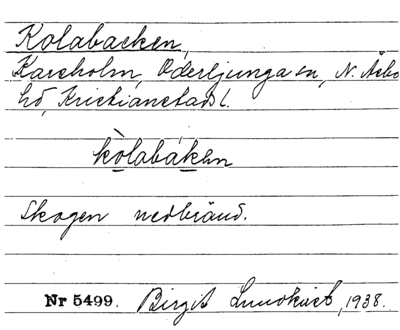 Kolabacken,
Kareholm, Oderljunga sn, N. Åsbo
hd, Kristianstads l.
kòlabákƏn
Skogen nedbränd.
Nr 5499. Birgit Lundkvist, 1938.